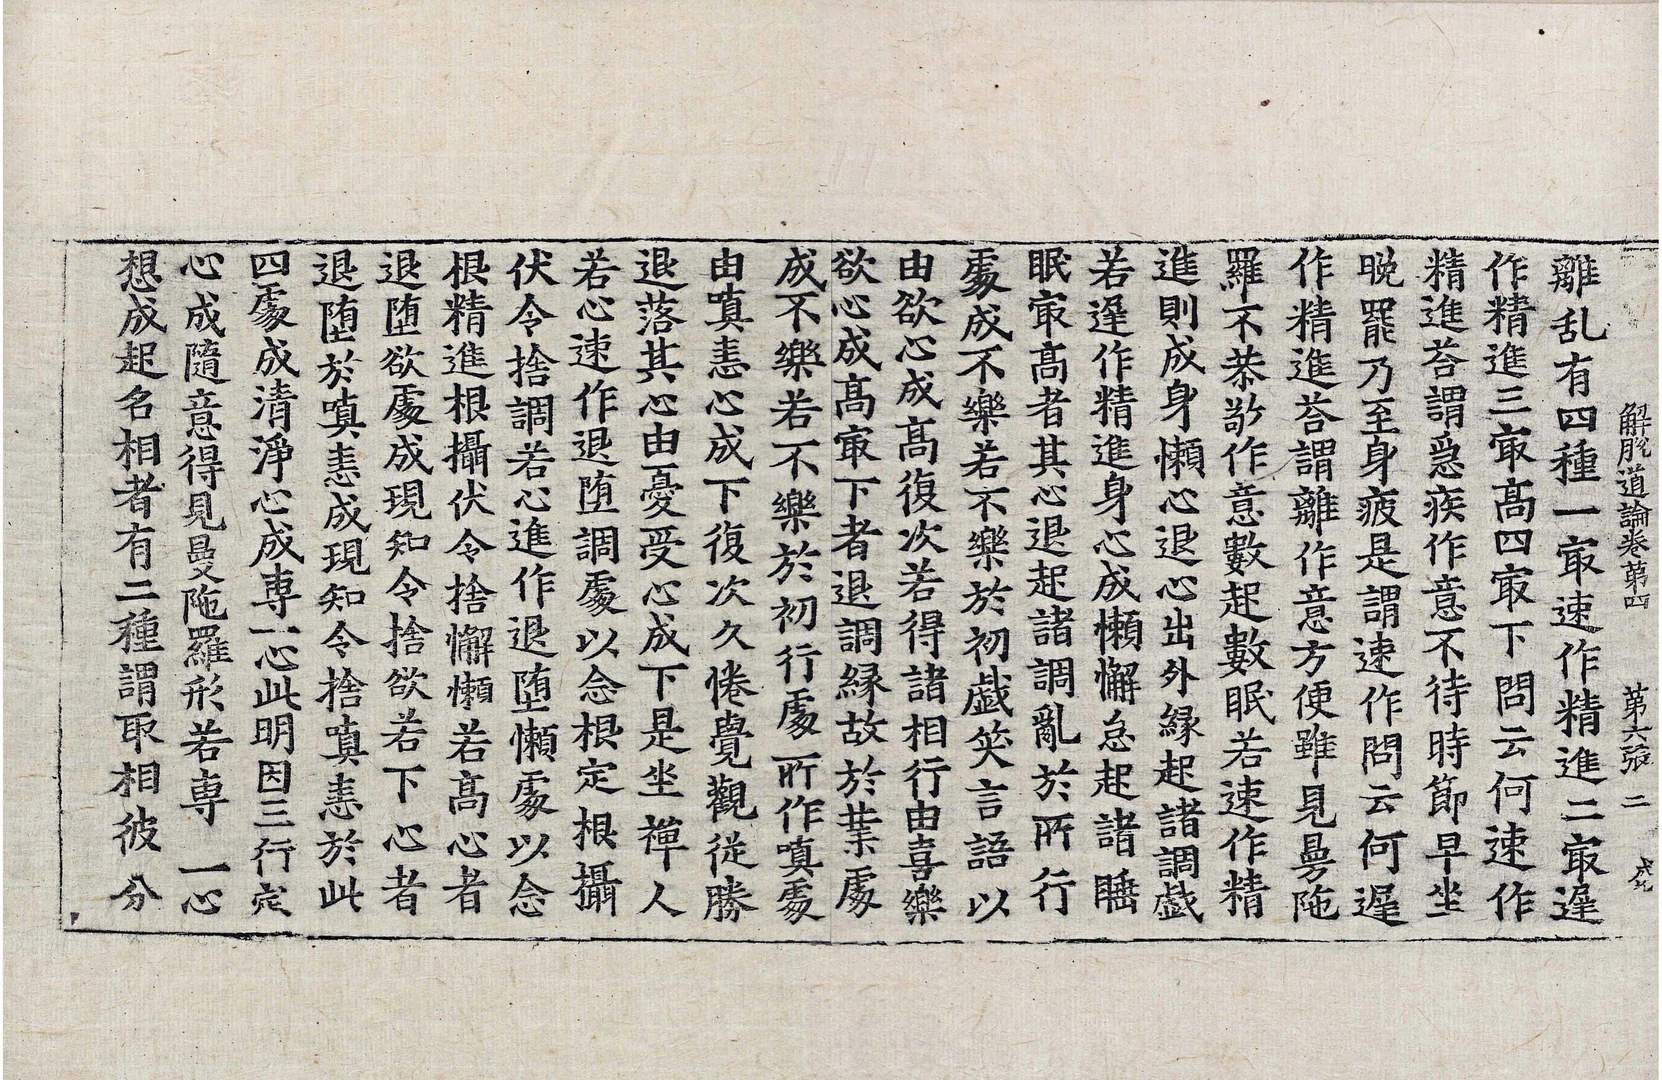 解脫道論卷第四　第六張　二
離乱有四種一㝡速作精進二㝡遲
作精進三㝡髙四㝡下問云何速作
精進荅謂急疾作意不待時節早坐
晚罷乃至身疲是謂速作問云何遲
作精進荅謂離作意方便雖見曼陁
羅不恭敬作意數起數眠若速作精
進則成身懶心退心出外緣起諸調戲
若遲作精進身心成懶懈怠起諸睡
眠㝡髙者其心退起諸調亂於所行
處成不樂若不樂於初戲笑言語以
由欲心成髙復次若得諸相行由喜樂
欲心成髙㝡下者退調緣故於業處
成不樂若不樂於初行處所作嗔處
由嗔恚心成下復次久倦覺觀從勝
退落其心由憂受心成下是坐禪人
若心速作退堕調處以念根定根攝
伏令捨調若心進作退堕懶處以念
根精進根攝伏令捨懈懶若髙心者
退堕欲處成現知令捨欲若下心者
退堕於嗔恚成現知令捨嗔恚於此
四處成清淨心成専一心此明因三行定
心成隨意得見曼陁羅形若専一心
想成起名相者有二種謂取相彼分